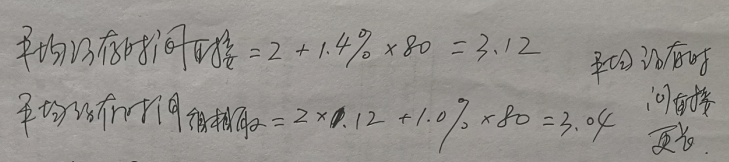 平均访存时间直接 = 2 + 1.4% × 80 = 3.12
平均访存时间组相联 = 2 × 1.12 + 1.0% × 80 = 3.04
平均访存时
间直接
更长.